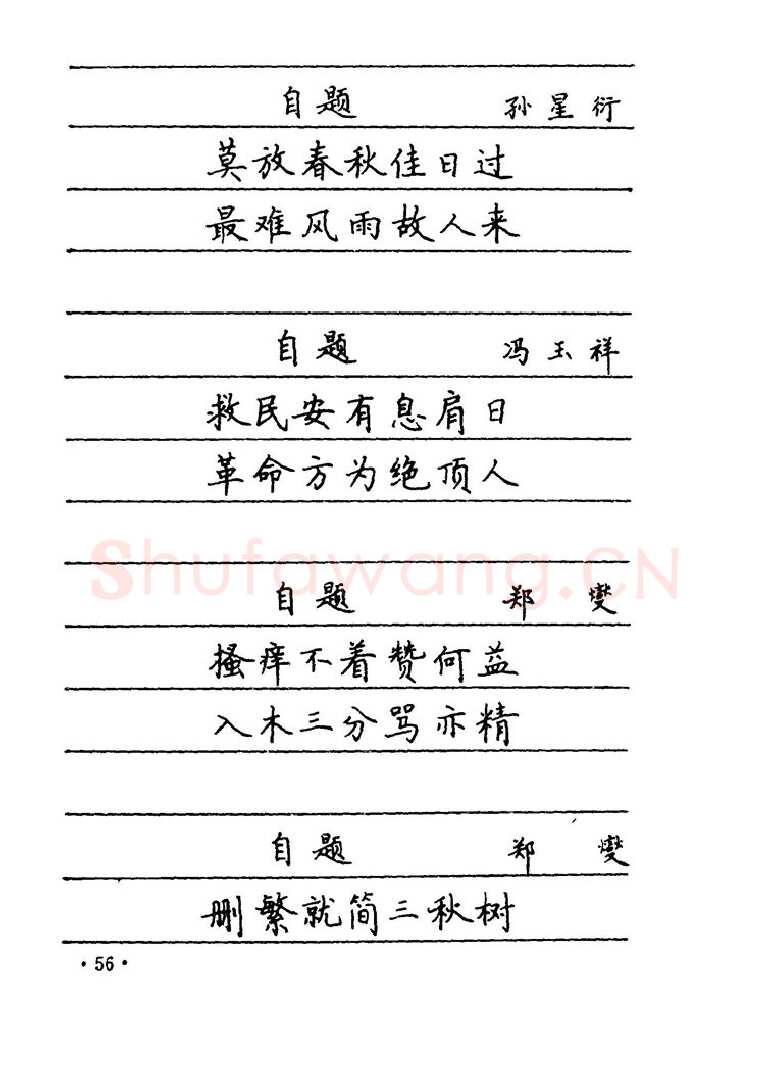 自题 孙星衍
莫放春秋佳日过
最难风雨故人来
自题 冯玉祥
救民安有息肩日
革命方为绝顶人
Shufawang.CN
自题 郑燮
搔痒不着赞何益
入木三分骂亦精
自题 郑燮
删繁就简三秋树
·56·